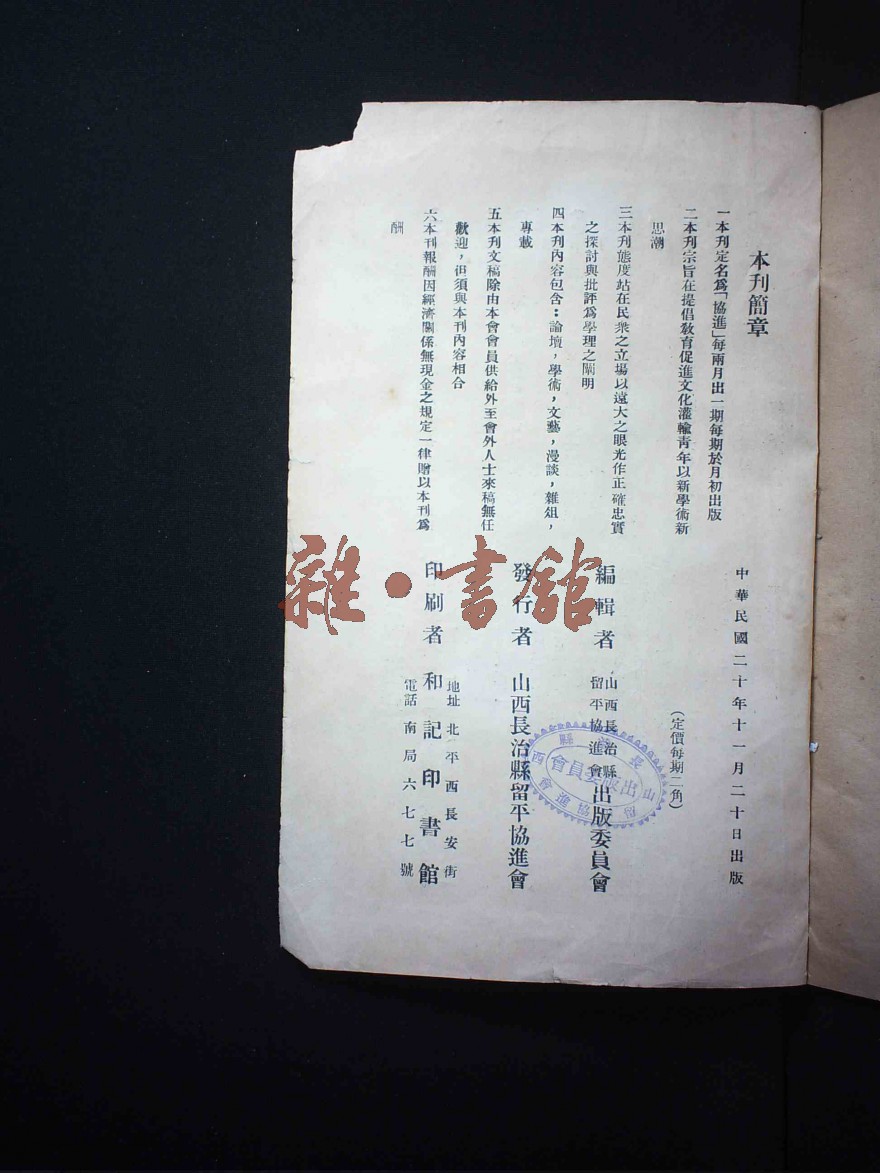 本刊簡章
一本刊定名爲「協進」每兩月出一期每期於月初出版
二本刊宗旨在提倡敎育促進文化灌輸靑年以新學術新
思潮
三本刊態度站在民衆之立場以遠大之眼光作正確忠實
之探討與批評爲學理之闡明
四本刊內容包含：論壇，學術，文藝，漫談，雜俎，
專載
五本刊文稿除由本會會員供給外至會外人士來稿無任
歡迎，但須與本刊內容相合
六本刊報酬因經濟關係無現金之規定一律贈以本刊爲
酬
中華民國二十年十一月二十日出版
（定價每期二角）
編輯者
山西長治縣
留平協進會
出版委員會
發行者 山西長治縣留平協進會
印刷者 和記印書館
地址北平西長安街
電話南局六七七號
出版委員會
雜·書館